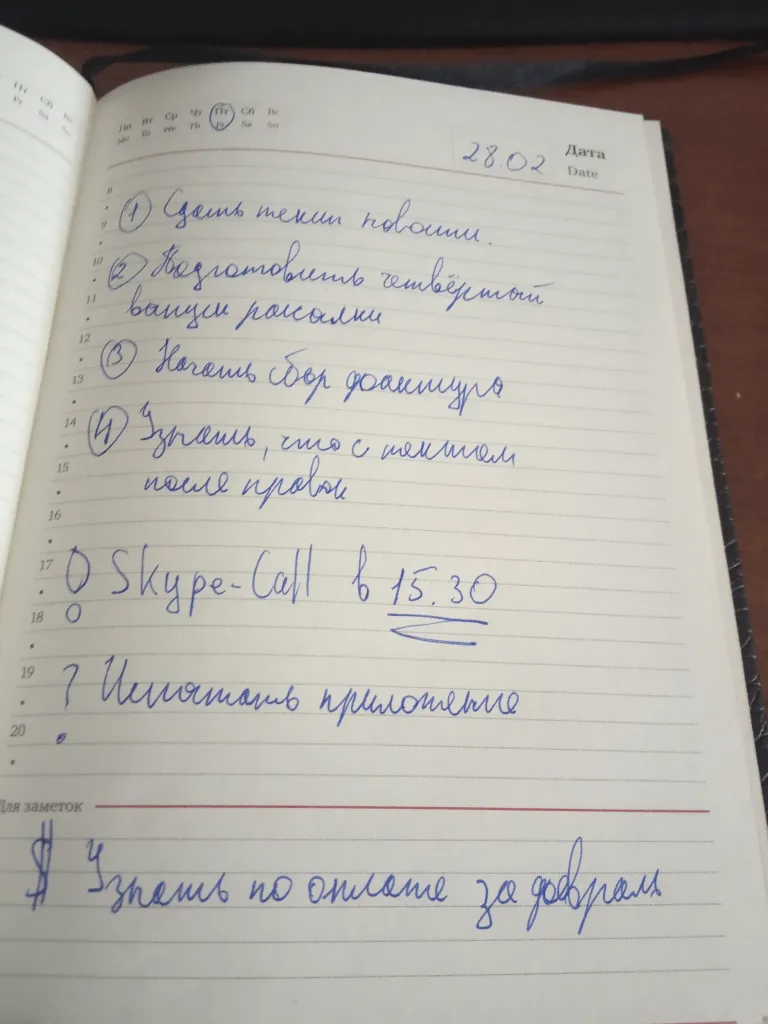 Пт Сб Вс
Fr Sa Su
Пн Вт Ср Чт Пт Сб Вс
Mo Tu We Th Fr Sa Su
28.02 Дата
Date
8
9
10
11
12
13
14
15
16
17
18
19
20
① Сдать текст новости.
② Подготовить четвёртый
выпуск рассылки
③ Начать сбор фактуры
④ Узнать, что с текстом
после правок
! Skype-Call в 15.30
? Испытать приложение
Для заметок
$ Узнать по оплате за февраль